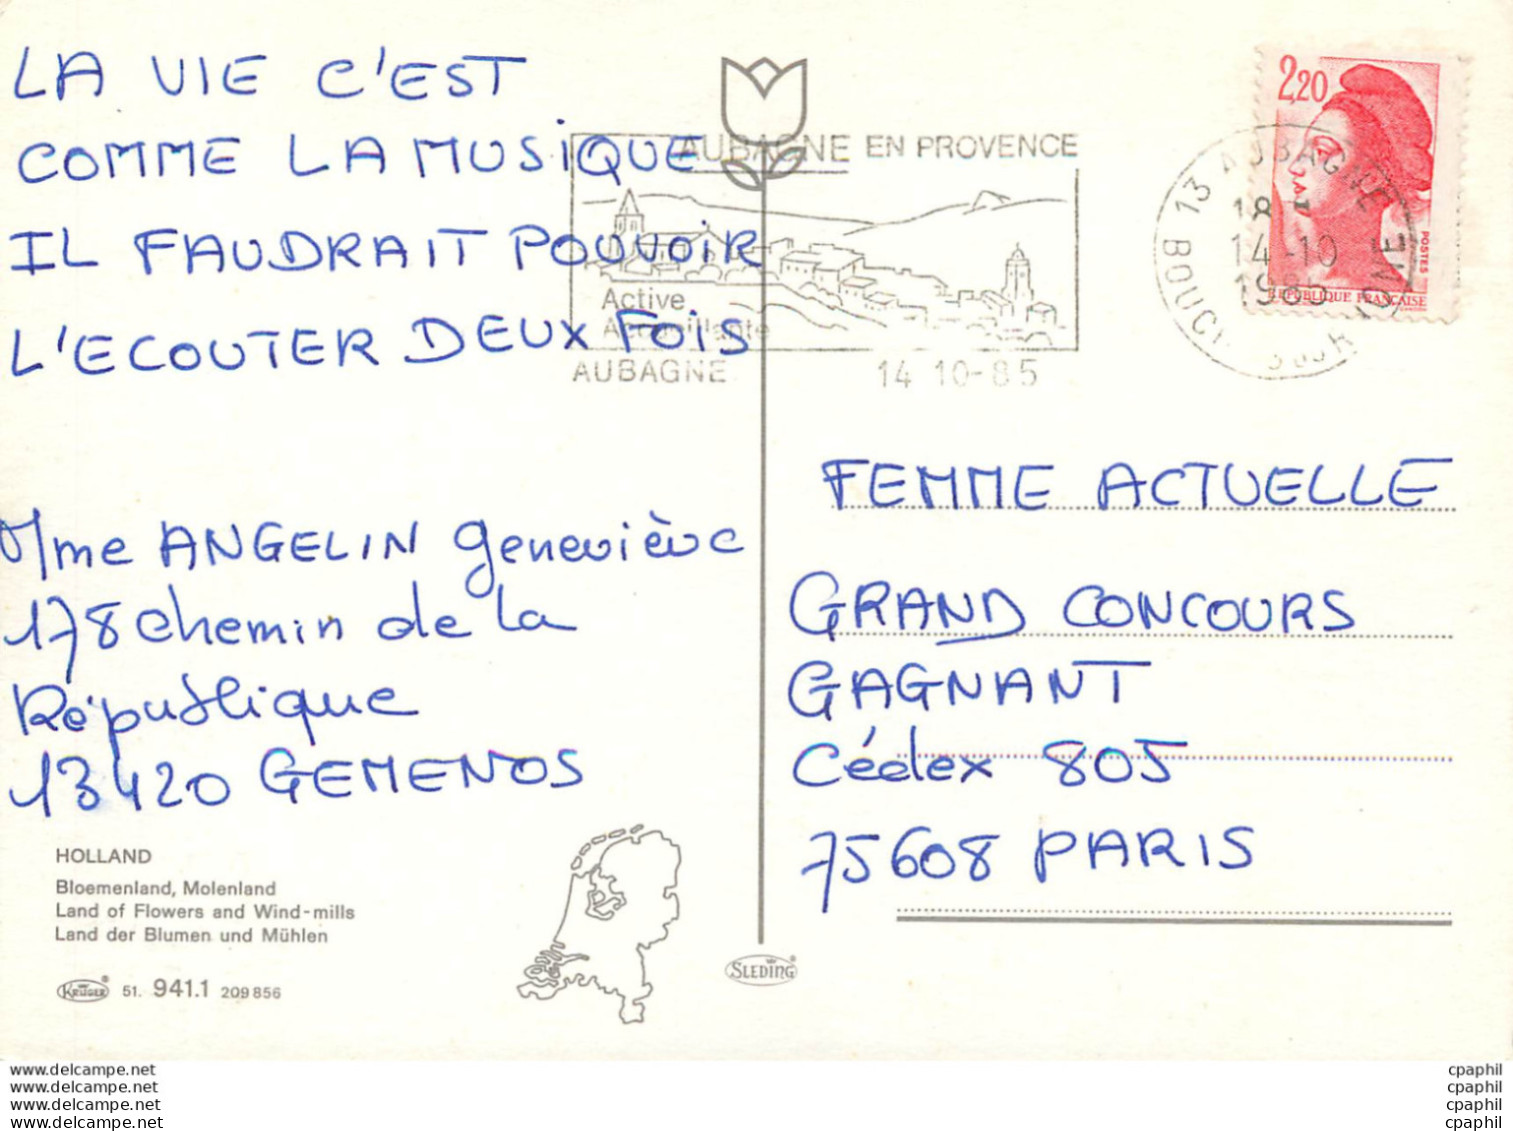 LA VIE C'EST
COMME LA MUSIQUE
IL FAUDRAIT POUVOIR
L'ECOUTER DEUX FOIS
Mme ANGELIN Geneviève
178 chemin de la
République
13420 GEMENOS
HOLLAND
Bloemenland, Molenland
Land of Flowers and Wind-mills
Land der Blumen und Mühlen
KRÜGER® 51. 941.1 209 856
SLEDING®
AUBAGNE EN PROVENCE
Active
Accueillante
AUBAGNE 14 10-85
2,20
POSTES
REPUBLIQUE FRANÇAISE
13 AUBAGNE
18
14-10
1985
FEMME ACTUELLE
GRAND CONCOURS
GAGNANT
Cédex 805
75608 PARIS
www.delcampe.net
www.delcampe.net
www.delcampe.net
www.delcampe.net
cpaphil
cpaphil
cpaphil
cpaphil